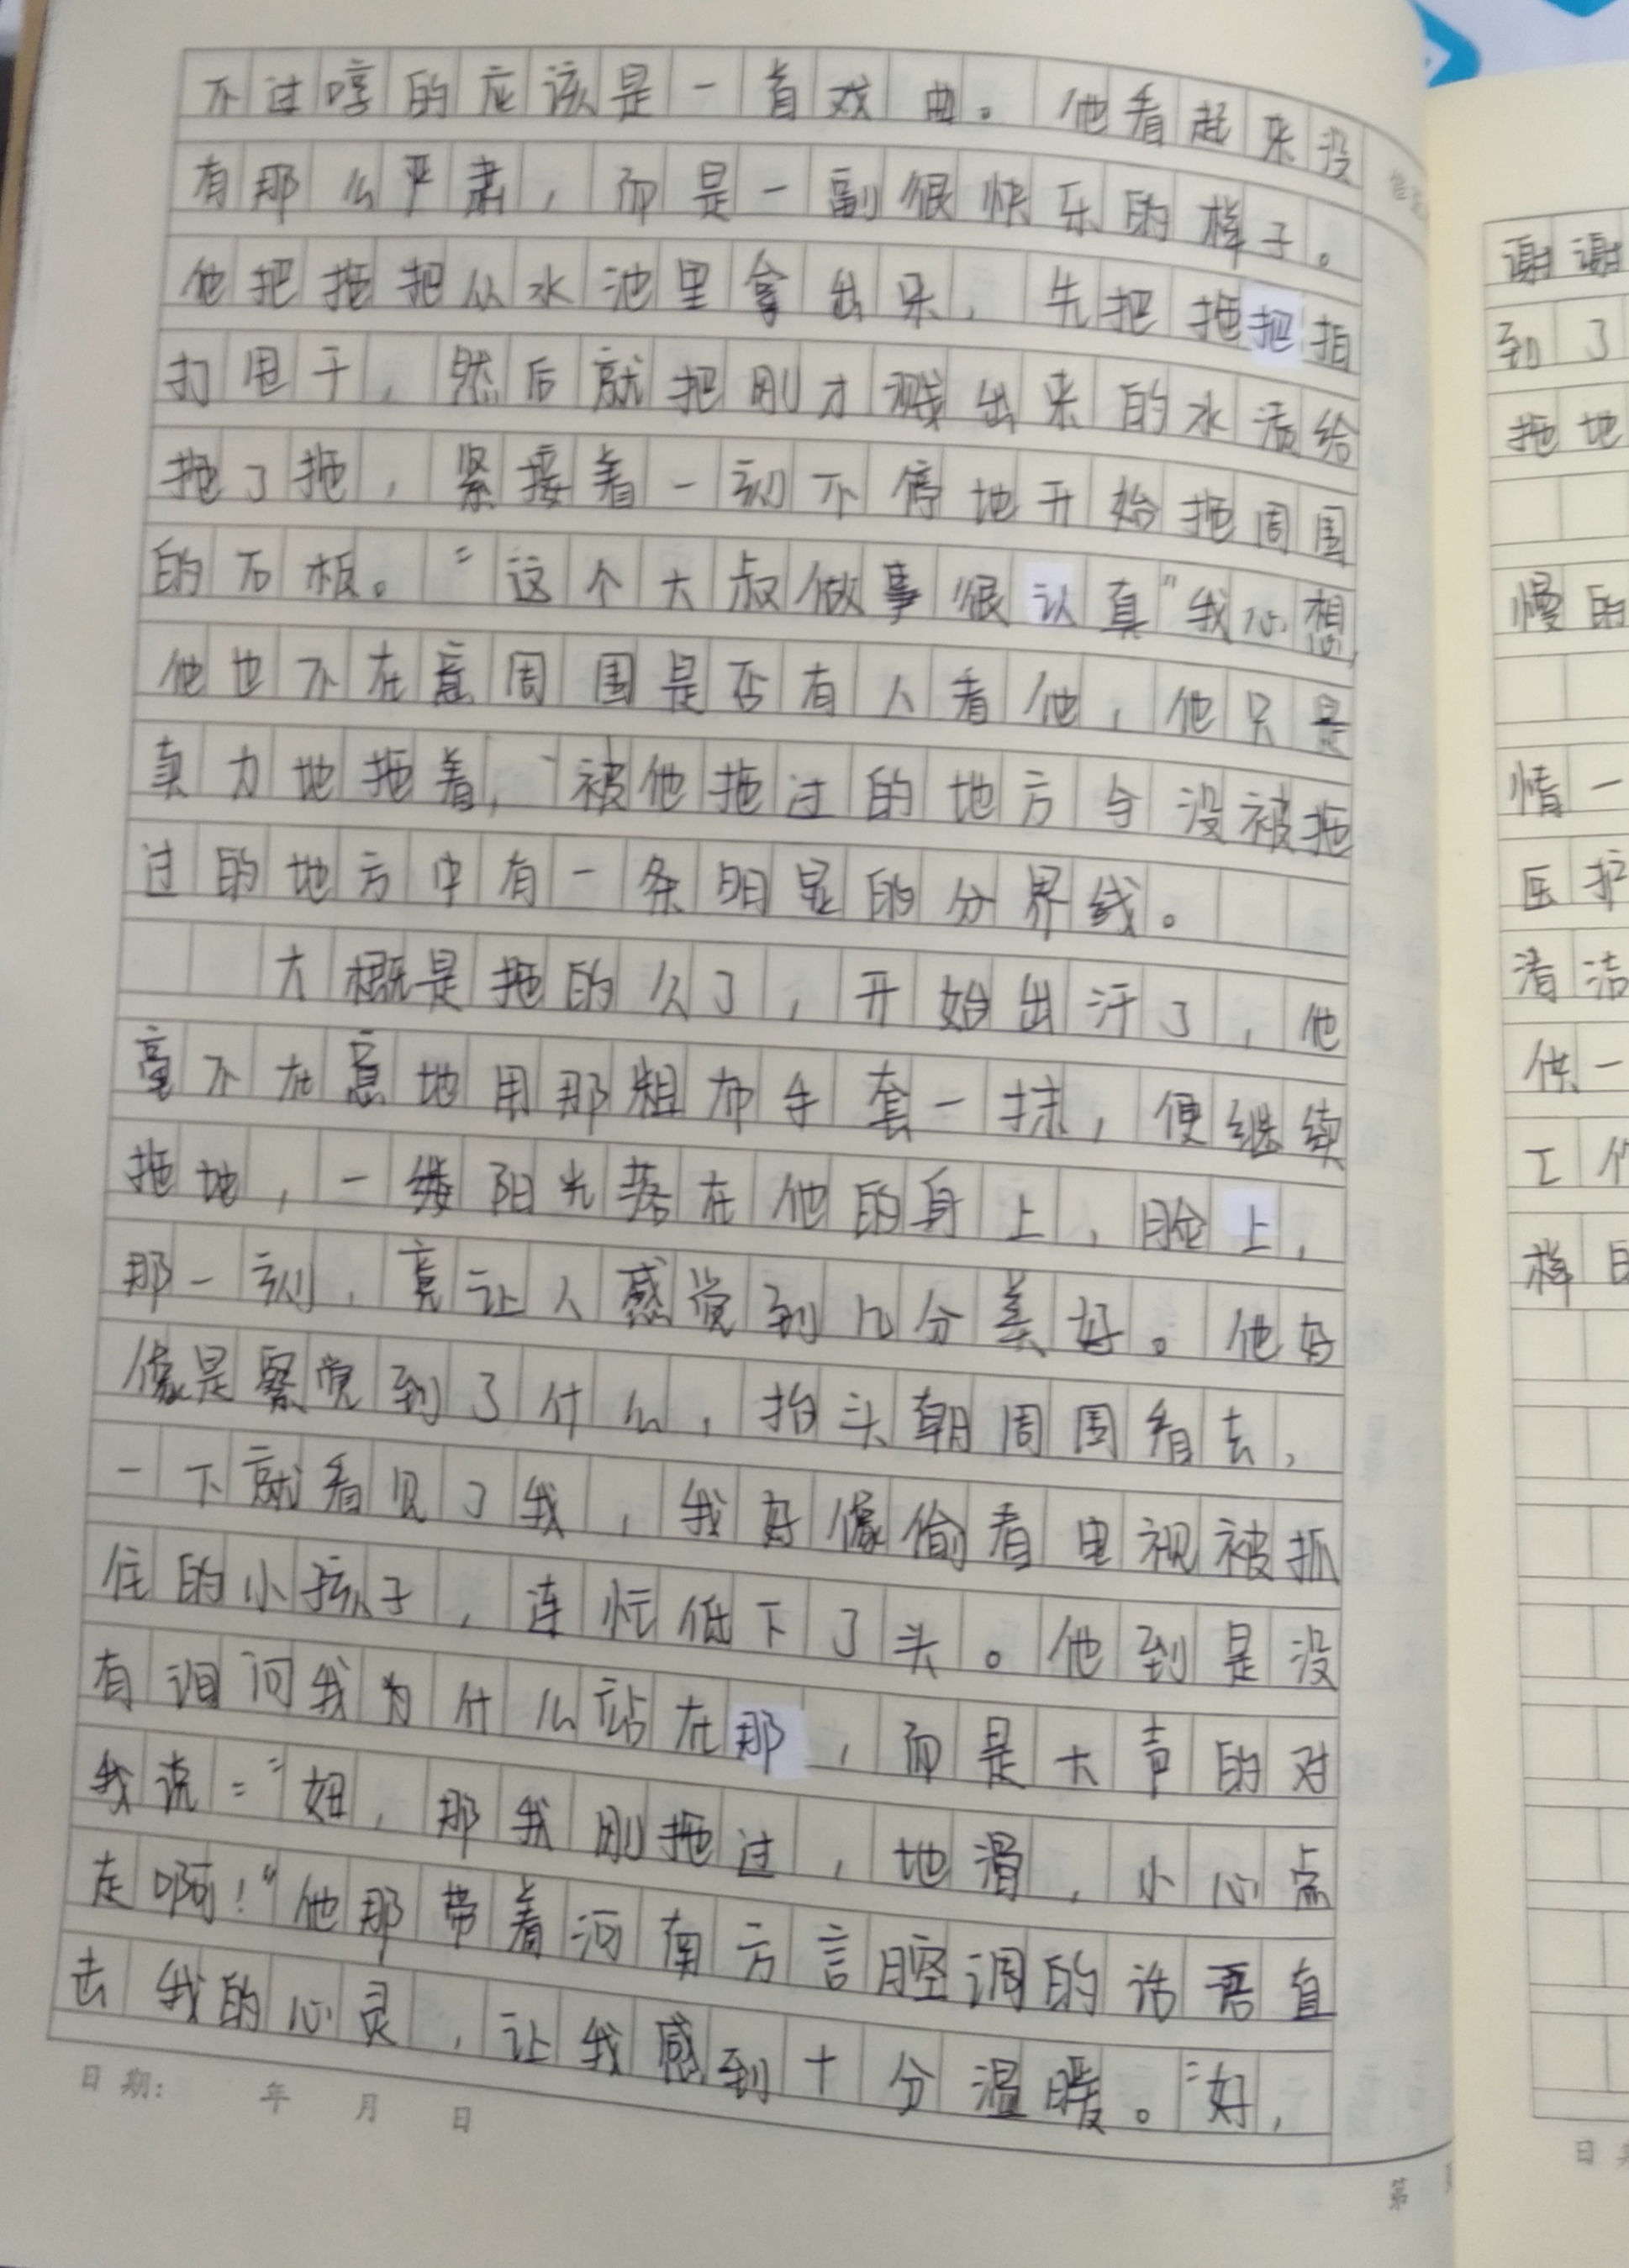 不过哼的应该是一首戏曲。他看起来没
有那么严肃，而是一副很快乐的样子。
他把拖把从水池里拿出来，先把拖把拍
打甩干，然后就把刚才溅出来的水渍给
拖了拖，紧接着一刻不停地开始拖周围
的石板。“这个大叔做事很认真”我心想，
他也不在意周围是否有人看他，他只是
卖力地拖着，被他拖过的地方与没被拖
过的地方中有一条明显的分界线。
大概是拖的久了，开始出汗了，他
毫不在意地用那粗布手套一抹，便继续
拖地，一缕阳光落在他的身上，脸上，
那一刻，竟让人感觉到几分美好。他好
像是察觉到了什么，抬头朝周围看去，
一下就看见了我，我好像偷看电视被抓
住的小孩子，连忙低下了头。他到是没
有询问我为什么站在那，而是大声的对
我说：“妞，那我刚拖过，地滑，小心点
走啊！”他那带着河南方言腔调的话语直
击我的心灵，让我感到十分温暖。“好，
日期： 年 月 日
第
谢谢
到了
拖地
慢的
情一
医护
清洁
供一
工作
样的
日期